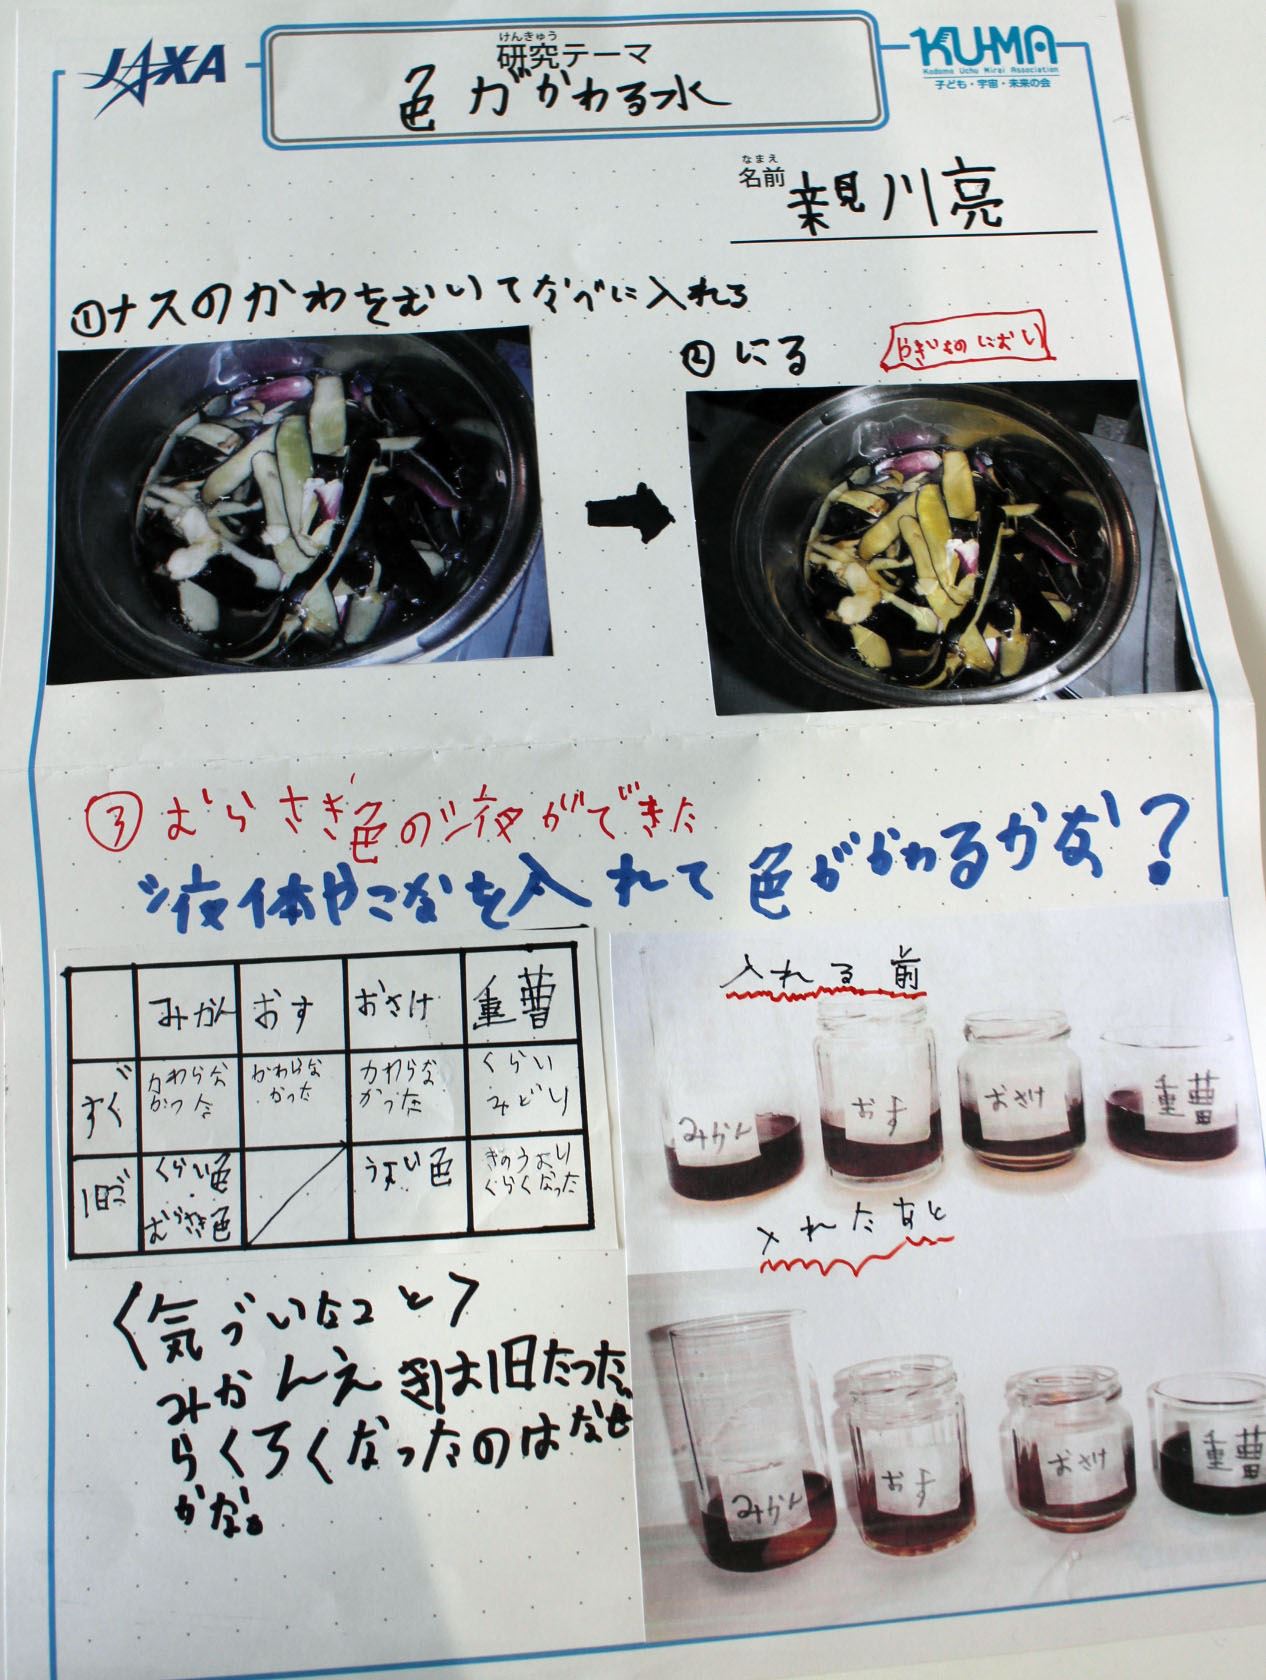 JAXA
けんきゅう
研究テーマ
色がかわる水
KU-MA
Kodomo Uchu Mirai Association
子ども・宇宙・未来の会
なまえ
名前 親川亮
①ナスのかわをむいてなべに入れる
②にる
やきいものにおい
③むらさき色の液ができた
液体やこなを入れて色がかわるかな?
みかん おす おさけ 重曹
すぐ かわらなかった かわらなかった かわらなかった くらいみどり
1日ご くらい色むらさき色 うすい色 きのうよりくらくなった
入れる前
みかん おす おさけ 重曹
入れたあと
みかん おす おさけ 重曹
〈気づいたこと〉
みかんえきは1日たった
らくろくなったのはなぜ
かな。